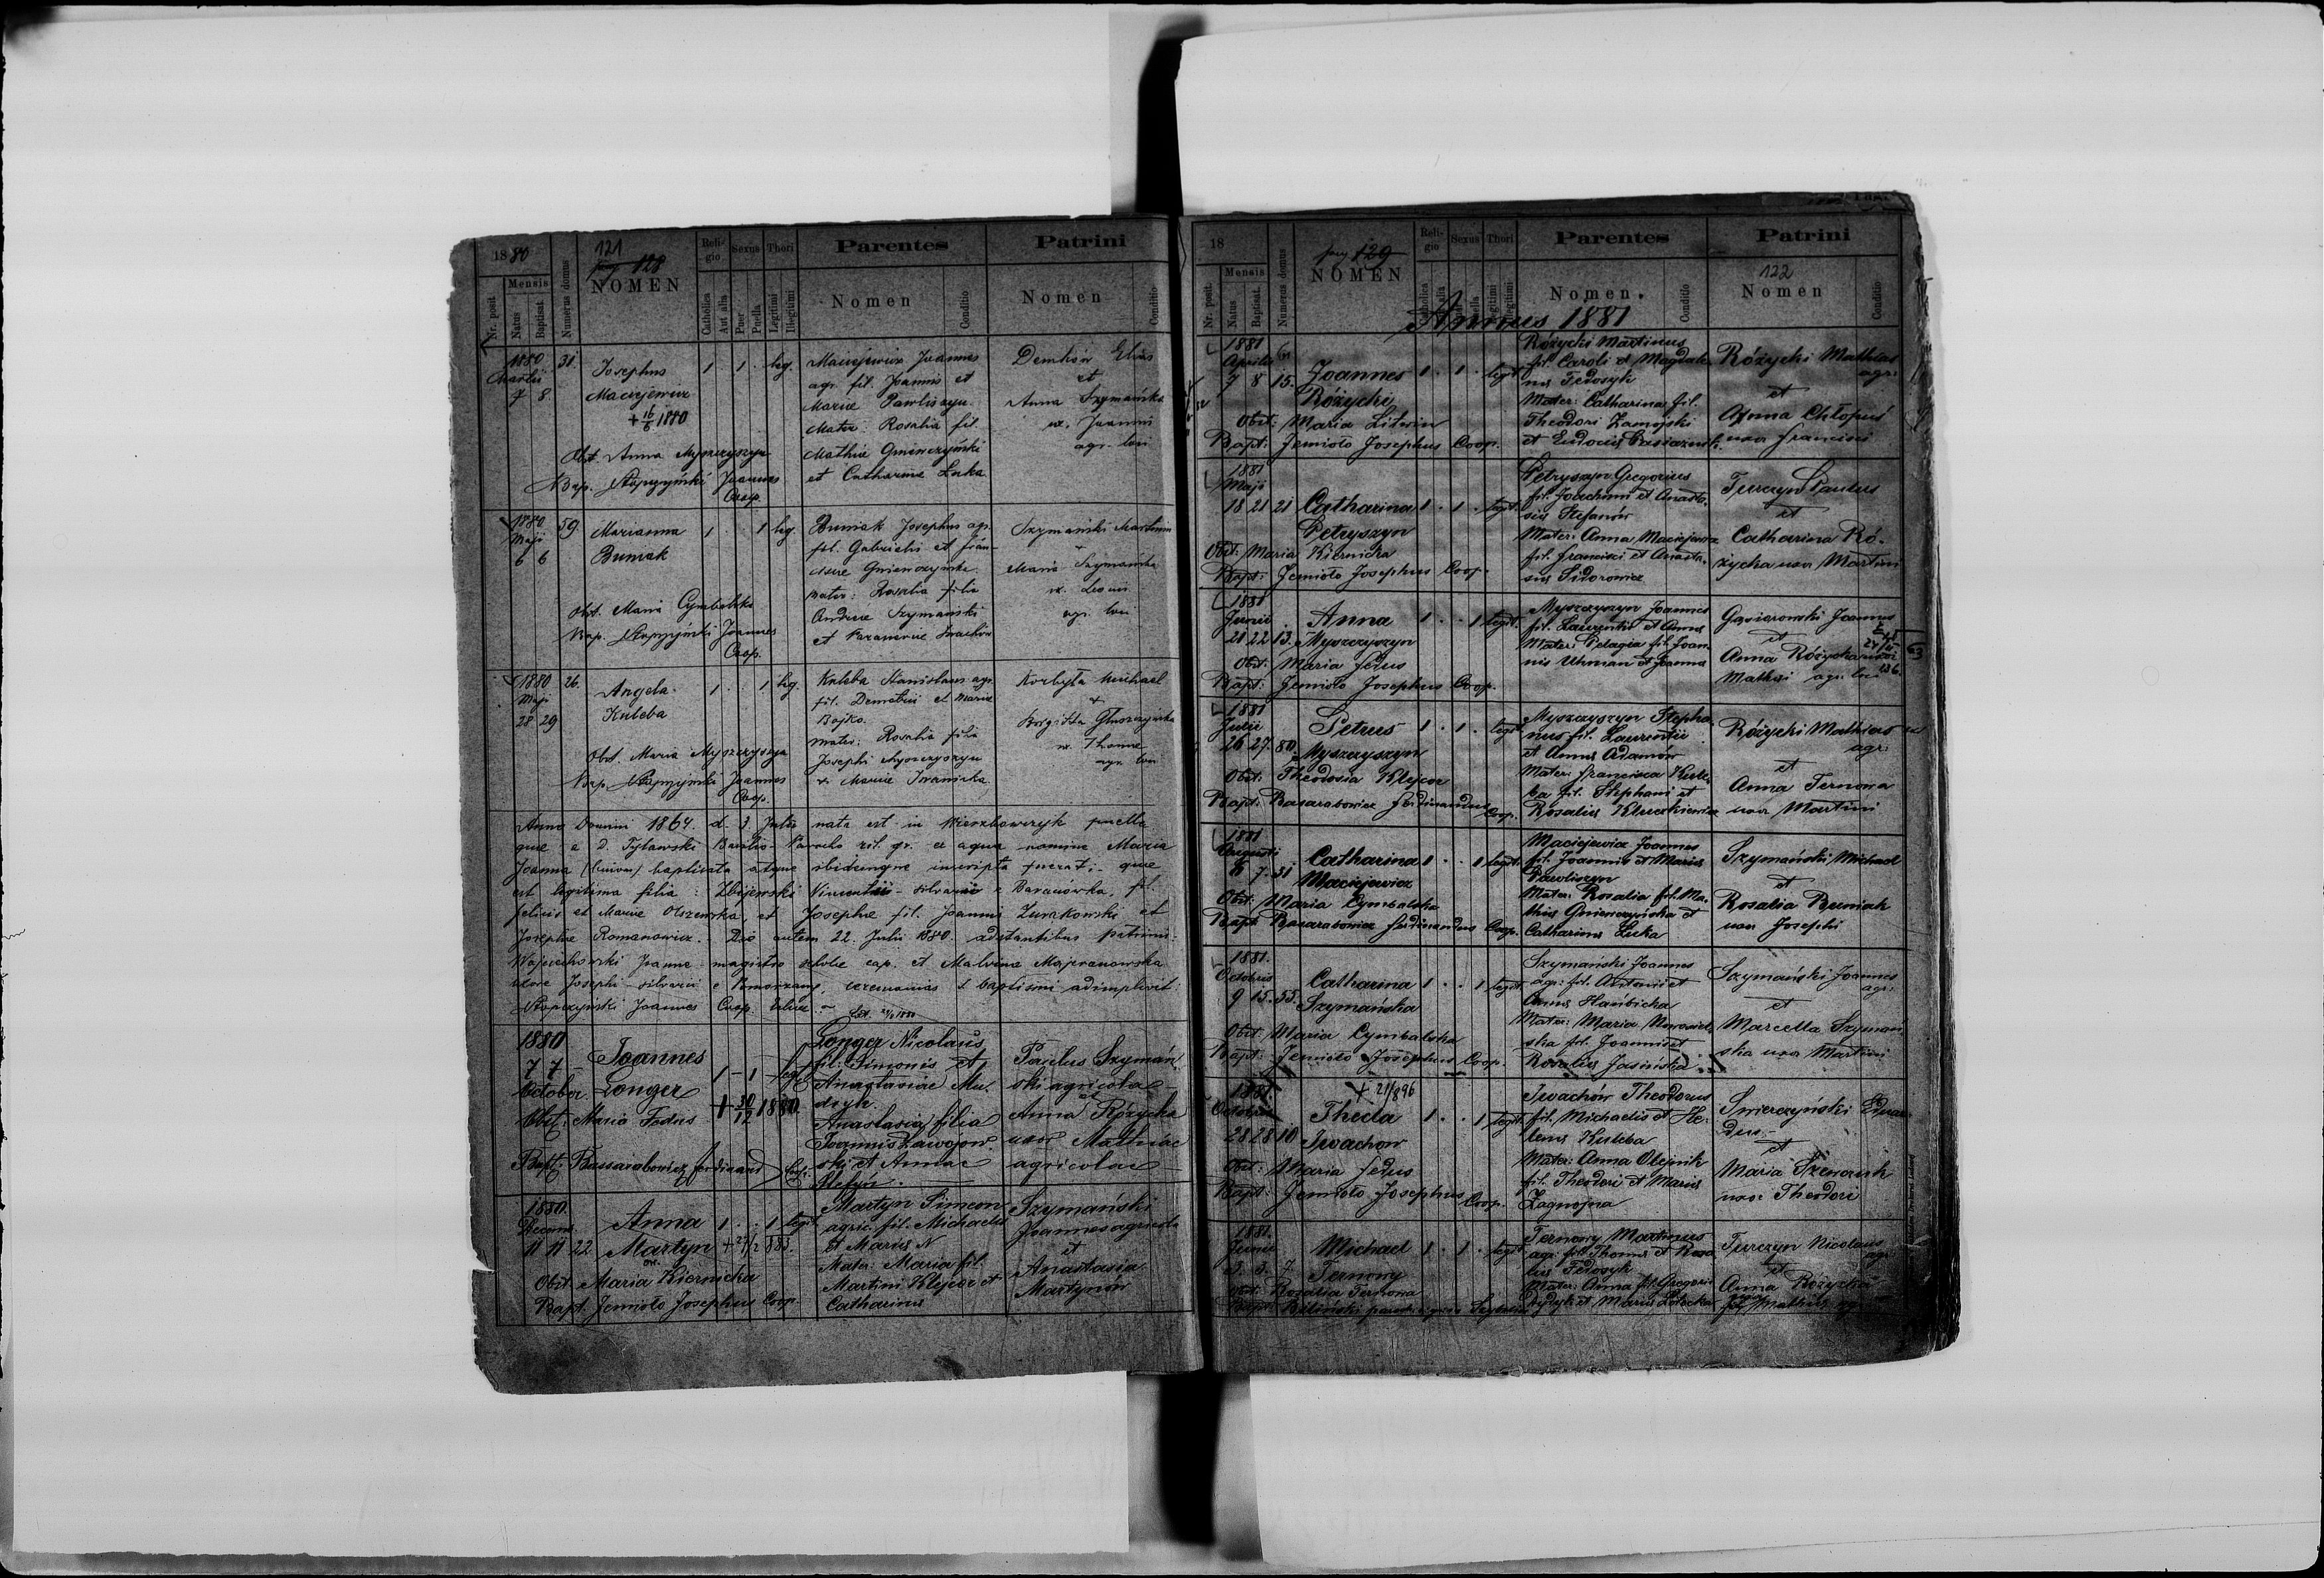 1880
121
pag 128
Nr. posit.
Mensis
Natus
Baptisat.
Numerus domus
NOMEN
Religio
Catholica
Aut alia
Sexus
Puer
Puella
Thori
Legitimi
Illegitimi
Parentes
Nomen
Conditio
Patrini
Nomen
Conditio
1880 31. Josephus 1 1 leg.
Martii
7 8 Maciejewicz
+ 16/6 1880
Obst. Anna Myszczyszyn
Bap. Słopczyński Joannes
Coop.
Maciejewicz Joannes
agr. fil. Joannis et
Mariae Pawliszyn
Mater: Rosalia fil.
Mathiae Gnienczyński
et Catharinae Łuka
Demków Elias
et
Anna Szymańska
ux. Joannis
agr. loci
1880 59. Marianna 1 1 leg.
Maji
6 6 Buniak
Obst. Maria Cymbalska
Bap. Słopczyński Joannes
Coop.
Buniak Josephus agr.
fil. Gabrielis et Fran-
ciscae Gnienczyńska
Mater: Rosalia filia
Andreae Szymański
et Iwachów
Szymański Martinus
+
Maria Szymańska
ux. Leonis
agr. loci
1880 26. Angela 1 1 leg.
Maji
28 29 Kuleba
Obst. Maria Myszczyszyn
Bap. Słopczyński Joannes
Coop.
Kuleba Stanislaus agr.
fil. Demetrii et Mariae
Bojko.
Mater: Rosalia filia
Josephi Myszczyszyn
+ Mariae Iwanicka
Korbyła Michael
+
Brigitta Głuszczyńska
ux. Thomae
agr. loci
Anno Domini 1864. d. 3 Julii nata est in Wierzbowczyk puella
quae a D. Tytawski Basilio Parocho rit. gr. ex aqua nomine Maria
Joanna (binom) baptisata atque ibidemque inscripta fuerat; quae
est legitima filia: Zbijewski Vincentii - silvarii e Baranówka, fil.
Felicis et Mariae Olszewska, et Josephae fil. Joannis Żurakowski et
Josephae Romanowicz. Die autem 22. Julii 1880. adstantibus patrinis:
Wojciechowski Joanne magistro scholae cap. et Malvina Majeranowska
uxore Josephi silvarii e Pomorzany, ceremonias s. baptismi adimplevit:
Słopczyński Joannes Coop.
1880
7 7 Joannes 1 - 1 - leg.
October Longer
Obst: Maria Fedus + 30/12 1880
Bapt: Bassarabowicz Ferdinand Coop.
Longer Nicolaus
fil. Simonis et
Anastasiae Mu-
dryk.
Anastasia filia
Joannis Zawojow-
ski et Annae
Stefyn.
Paulus Szymań-
ski agricola
et
Anna Różycka
uxor Mathiae
agricolae
1880.
Decemb. Anna 1 . . 1 legit.
11 11 22 Martyn + 27/2 883.
Obst. Maria Kiernicka
Bapt. Jemioło Josephus Coop.
Martyn Simeon
agric. fil. Michaelis
et Mariae N
Mater: Maria fil.
Martini Klejcor et
Catharinae
Szymański
Joannes agricola
et
Anastasia
Martynów
18
pag 129
122
Nr. posit.
Mensis
Natus
Baptisat.
Numerus domus
NOMEN
Religio
Sexus
Thori
Parentes
Nomen
Conditio
Patrini
Nomen
Conditio
Annus 1881
1881
Aprilis
7 8 15. Joannes 1 . 1 . legit.
Różycki
Obst: Maria Litwin
Bapt: Jemioło Josephus Coop.
Różycki Martinus
fil. Caroli et Magdale-
nae Fedosyk
Mater: Catharina fil.
Theodori Zamojski
et Eudociae
Różycki Mathias
agr:
et
Anna Chłopuś
uxor Francisci
1881
Maji
18 21 21 Catharina 1 . 1 . legit.
Petryszyn
Obst: Maria Kiernicka
Bapt: Jemioło Josephus Coop.
Petryszyn Gregorius
fil. Joachimi et Anasta-
siae Stefanów
Mater: Anna Maciejewicz
fil. Francisci et Anasta-
siae Sidorowicz
Turczyn Paulus
et
Catharina Ró-
życka uxor Martini
1881
Junii
21 22 13. Anna 1 . . 1 legit.
Myszczyszyn
Obst. Maria Fedus
Bapt: Jemioło Josephus Coop.
Myszczyszyn Joannes
fil. Laurentii et Annae
Mater: Pelagia fil. Joan-
nis Uhman et Joanna
Gąsiorowski Joannes
et
Anna Różycka uxor
Mathiae agr. loci
1881
Julii
26 27. 80. Petrus 1 . 1 . legit.
Myszczyszyn
Obst. Theodosia Klejcor
Bapt: Basarabowicz Ferdinandus
Coop.
Myszczyszyn Stepha-
nus fil. Laurentii
et Annae Adamów
Mater: Francisca Kule-
ba fil. Stephani et
Rosaliae Kluczkiewicz
Różycki Mathias
agr:
et
Anna Ternowa
uxor Martini
1881
Augusti
6 7. 31 Catharina 1 . . 1 legit.
Maciejewicz
Obst. Maria Cymbalska
Bapt. Basarabowicz Ferdinandus Coop.
Maciejewicz Joannes
fil. Joannis et Mariae
Pawliszyn
Mater: Rosalia fil. Ma-
thiae Gnienczyńska et
Catharinae Łuka
Szymański Michael
et
Rosalia Buniak
uxor Josephi
1881.
Octobris
9 15. 55. Catharina 1 . . 1 legit.
Szymańska
Obst. Maria Cymbalska
Bapt: Jemioło Josephus Coop.
Szymański Joannes
agr: fil. Antonii et
Annae Hanbicka
Mater: Maria
ska fil. Joannis et
Rosaliae Jasińska
Szymański Joannes
agr:
et
Marcella Szymań-
ska uxor Martini
1881. + 21/896
Octobris
28 28 10 Thecla 1 . . 1 legit.
Iwachow
Obst: Maria Fedus
Bapt: Jemioło Josephus
Coop.
Iwachów Theodorus
fil. Michaelis et He-
lenae Kuleba
Mater: Anna Olejnik
fil. Theodori et Mariae
Zagwojna
Smierczyński Eduar-
dus.
et
Maria Szewczuk
uxor Theodori
1881.
Junii
2. 3. 7. Michael 1 . 1 . legit.
Ternowy
Obst. Rosalia Ternowa
Ternowy Martinus
agr: fil. Thomae et Rosa-
liae Fedosyk
Mater: Anna fil. Gregorii
Dydyk et Mariae
Turczyn Nicolaus
agr.
et
Anna Różycka